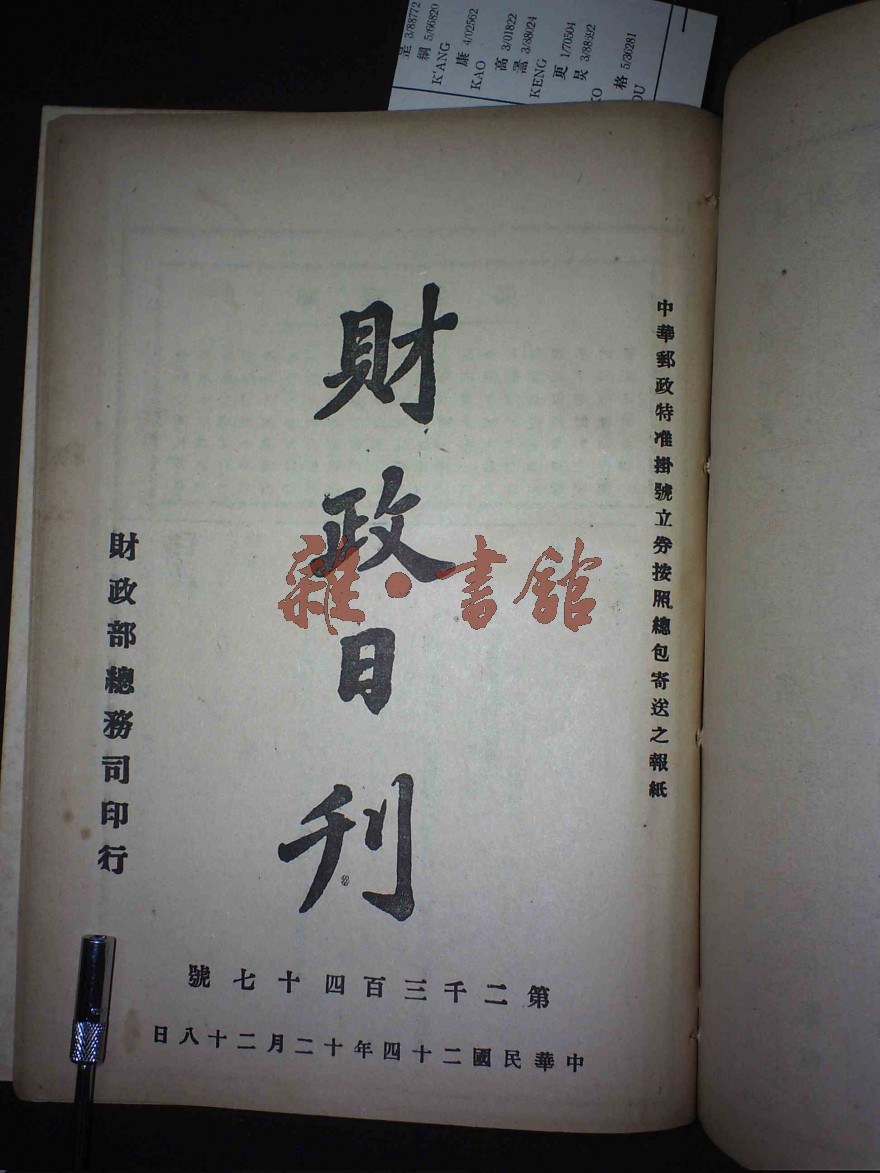 中華郵政特准掛號立劵按照總包寄送之報紙
財政日刊
財政部總務司印行
第二千三百四十七號
中華民國二十四年十二月二十八日
雜·書館
3/88772
綱 5/66820
K'ANG
康 4/02562
KAO
高 3/01822
3/88024
KENG
更 1/70504
3/88392
KO
格 5/30281
OU